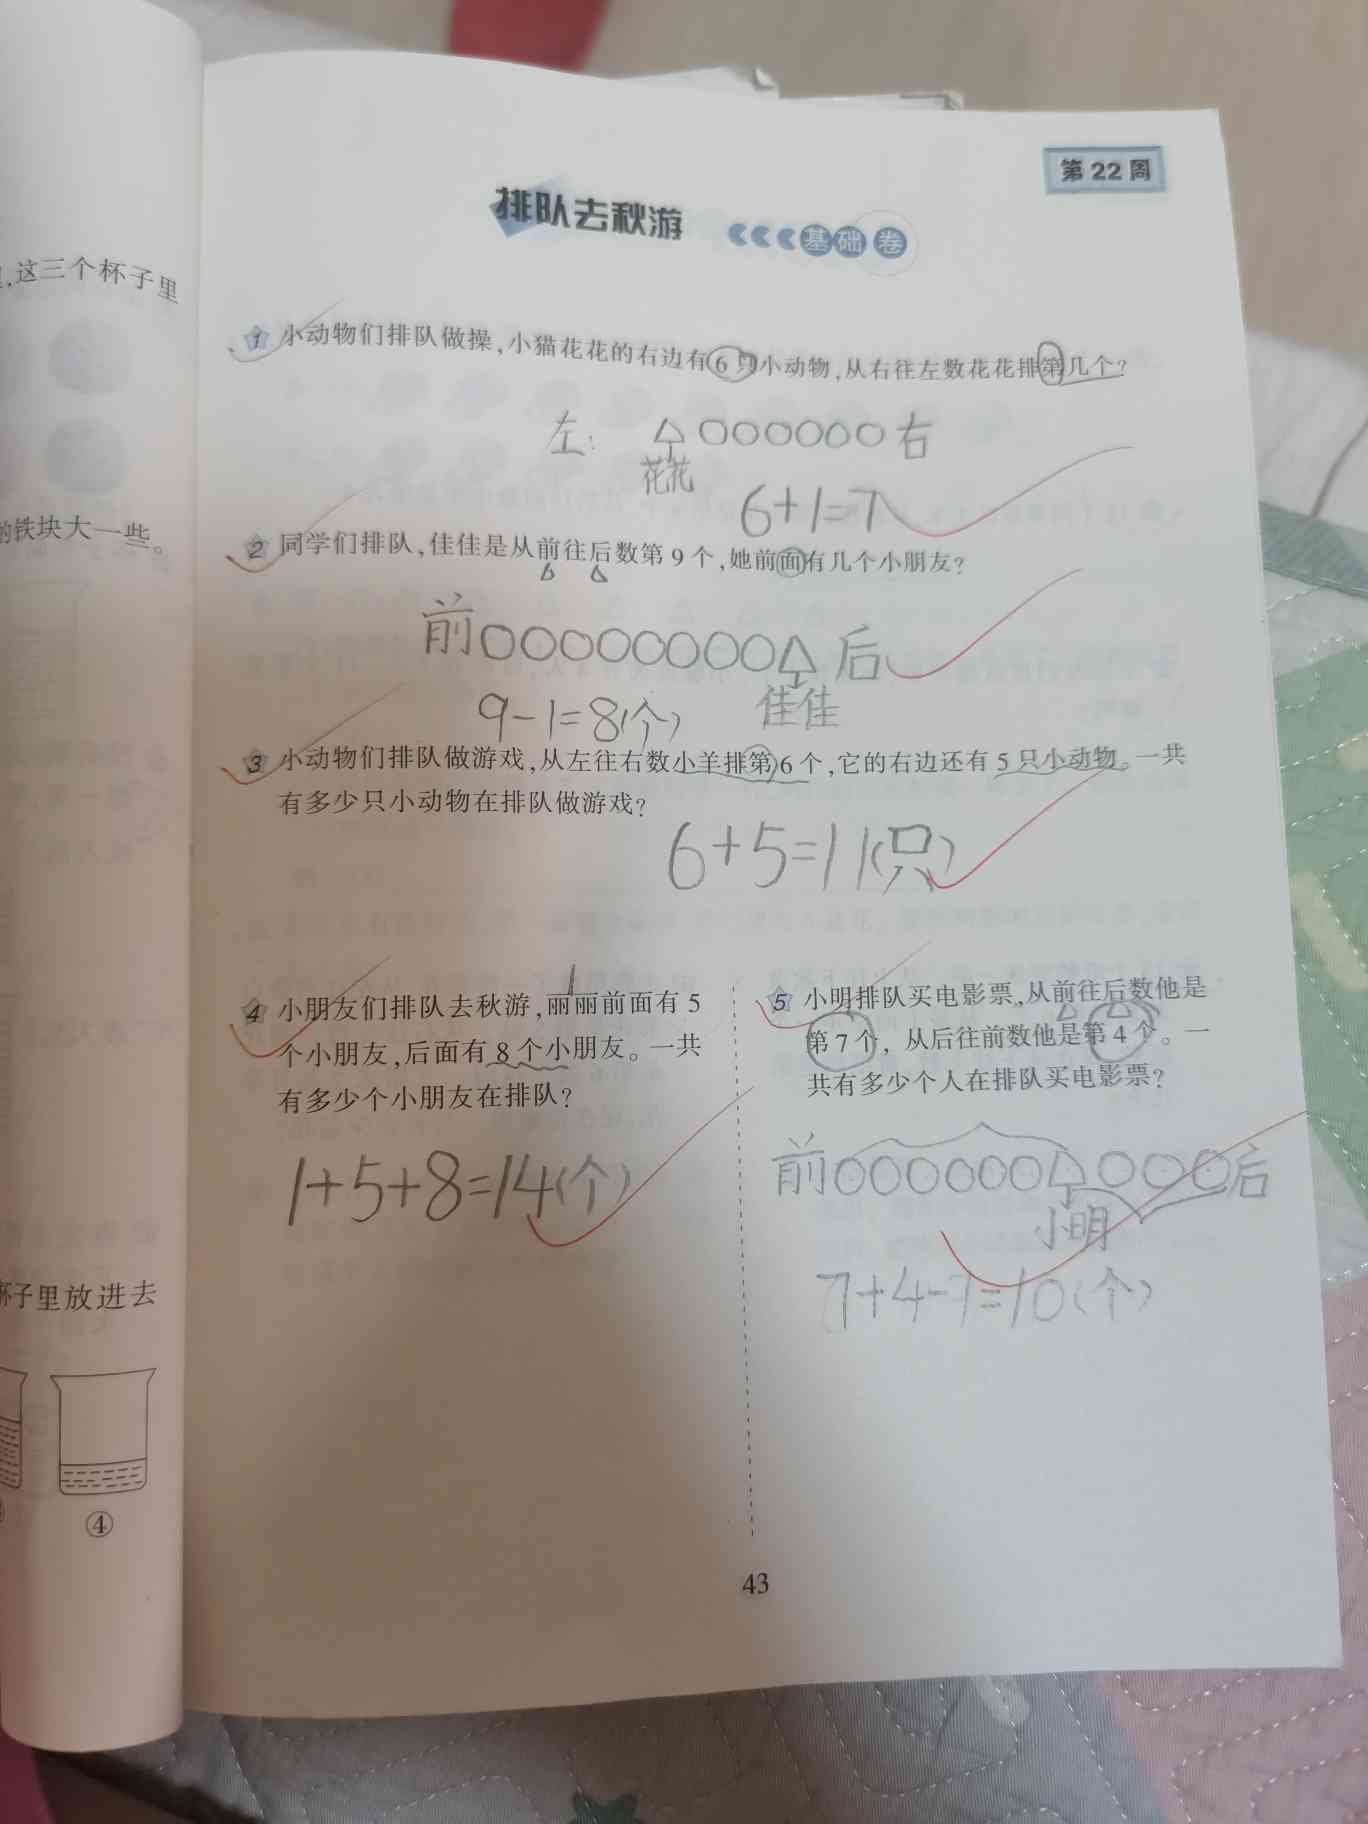 第 22 周
排队去秋游
基础卷
,这三个杯子里
的铁块大一些。
杯子里放进去
④
1 小动物们排队做操,小猫花花的右边有 6 只小动物,从右往左数花花排第几个?
左: 右
花花
6+1=7
2 同学们排队,佳佳是从前往后数第 9 个,她前面有几个小朋友?
前 后
佳佳
9-1=8(个)
3 小动物们排队做游戏,从左往右数小羊排第 6 个,它的右边还有 5 只小动物。一共
有多少只小动物在排队做游戏?
6+5=11(只)
4 小朋友们排队去秋游,丽丽前面有 5
1
个小朋友,后面有 8 个小朋友。一共
有多少个小朋友在排队?
1+5+8=14(个)
5 小明排队买电影票,从前往后数他是
第 7 个, 从后往前数他是第 4 个。一
共有多少个人在排队买电影票?
前 后
小明
7+4-1=10(个)
43